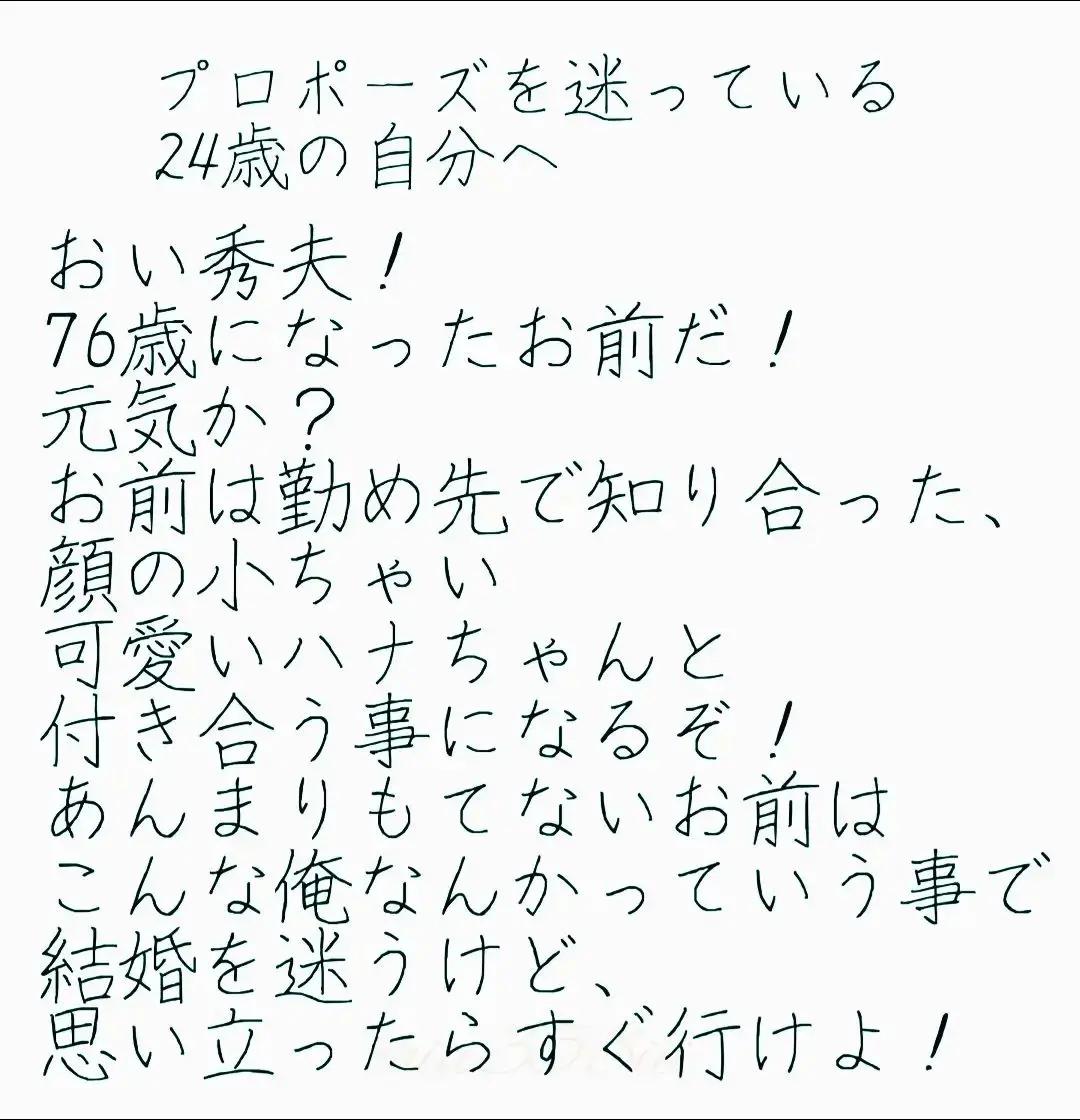 プロポーズを迷っている
24歳の自分へ
おい秀夫！
76歳になったお前だ！
元気か？
お前は勤め先で知り合った、
顔の小ちゃい
可愛いハナちゃんと
付き合う事になるぞ！
あんまりもてないお前は
こんな俺なんかっていう事で
結婚を迷うけど、
思い立ったらすぐ行けよ！